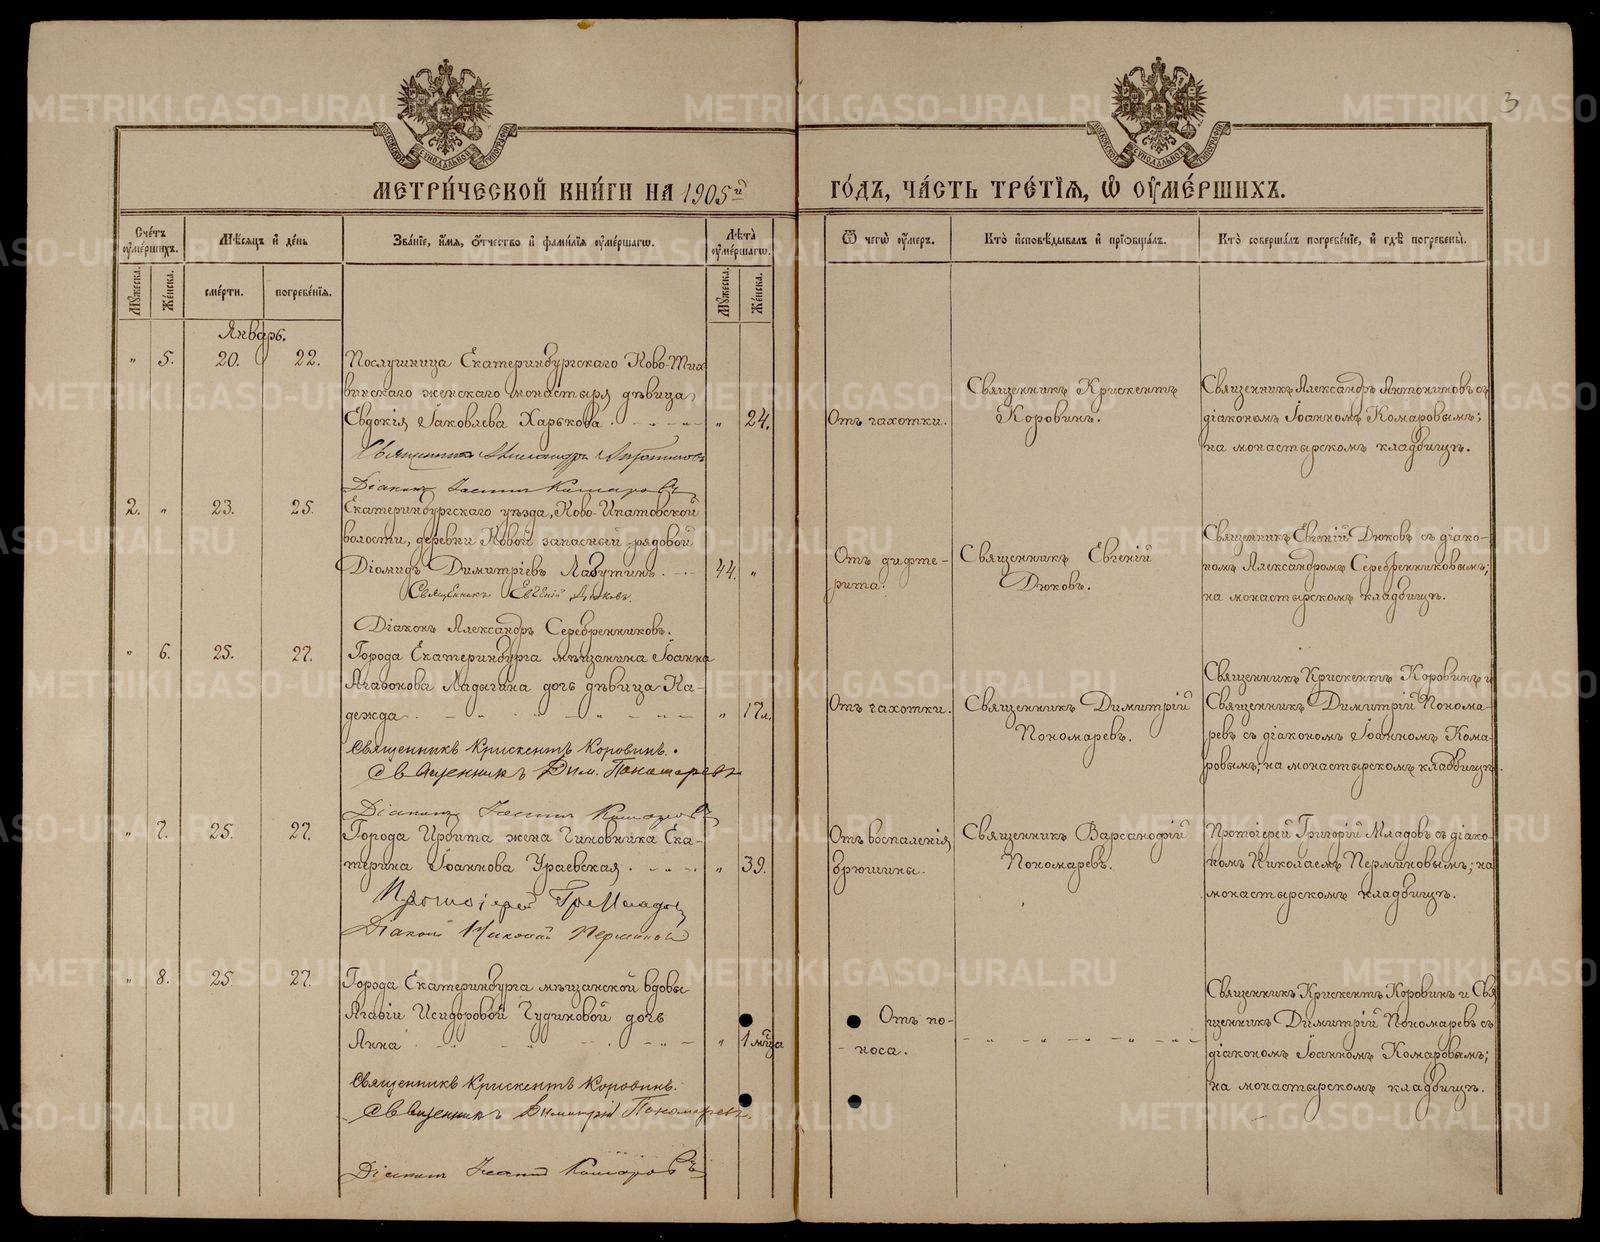 3
МЕТРИ́ЧЕСКОЙ КНИ́ГИ НА 1905й
ГО́ДЪ, ЧА́СТЬ ТРЕ́ТІѦ, Ѡ҆ ОУ҆МЕ́РШИХЪ.
Сче́тъ оу҆ме́ршихъ.
Мѣ́сѧцъ и҆ де́нь
Зва́нїе, и҆́мѧ, ѻ҆́тчество и҆ фами́лїѧ оу҆ме́ршагѡ.
Лѣ́та оу҆ме́ршагѡ.
Ѿ чегѡ̀ оу҆́меръ.
Кто̀ и҆сповѣ́дывалъ и҆ прїѡбща́лъ.
Кто̀ соверша́лъ погребе́нїе, и҆ гдѣ̀ погребены̀.
Мꙋ́жеска.
Же́нска.
сме́рти.
погребе́нїѧ.
Мꙋ́жеска.
Же́нска.
Январь.
" 5. 20. 22.
Послушница Екатеринбургскаго Ново-Тих-
винскаго женскаго монастыря дѣвица
Евдокія Іаковлева Харькова. " 24.
Священникъ Александръ Антониновъ
Діаконъ Іоаннъ Комаровъ
Отъ чахотки.
Священникъ Крискентъ
Коровинъ.
Священникъ Александръ Антониновъ съ
діакономъ Іоанномъ Комаровымъ;
на монастырскомъ кладбищѣ.
2. " 23. 25.
Екатеринбургскаго уѣзда, Ново-Ипатовской
волости, деревни Новой запасный рядовой
Діомидъ Димитріевъ Лабутинъ. 44. "
Священникъ Евгеній Дюковъ.
Діаконъ Александръ Серебренниковъ.
Отъ дифте-
рита.
Священникъ Евгеній
Дюковъ.
Священникъ Евгеній Дюковъ съ діако-
номъ Александромъ Серебренниковымъ;
на монастырскомъ кладбищѣ.
" 6. 25. 27.
Города Екатеринбурга мѣщанина Іоанна
Агафонова Ладыгина дочь дѣвица На-
дежда " 17л.
Священникъ Крискентъ Коровинъ.
Священникъ Дим. Пономаревъ
Діаконъ Іоаннъ Комаровъ
Отъ чахотки.
Священникъ Димитрій
Пономаревъ.
Священникъ Крискентъ Коровинъ и
Священникъ Димитрій Понома-
ревъ съ діакономъ Іоанномъ Кома-
ровымъ; на монастырскомъ кладбищѣ.
" 7. 25. 27.
Города Ирбита жена чиновника Ека-
терина Іоаннова Ураевская. " 39.
Протоіерей Гр. Младовъ
Діаконъ Николай Перминовъ
Отъ воспаленія
брюшины.
Священникъ Варсанофій
Пономаревъ.
Протоіерей Григорій Младовъ съ діако-
номъ Николаемъ Перминовымъ; на
монастырскомъ кладбищѣ.
" 8. 25. 27.
Города Екатеринбурга мѣщанской вдовы
Агафіи Исидоровой Чудиновой дочь
Анна " 1 мѣсяца
Священникъ Крискентъ Коровинъ.
Священникъ Димитрій Пономаревъ.
Діаконъ Іоаннъ Комаровъ
Отъ по-
носа.
Священникъ Крискентъ Коровинъ и Свя-
щенникъ Димитрій Пономаревъ съ
діакономъ Іоанномъ Комаровымъ;
на монастырскомъ кладбищѣ.